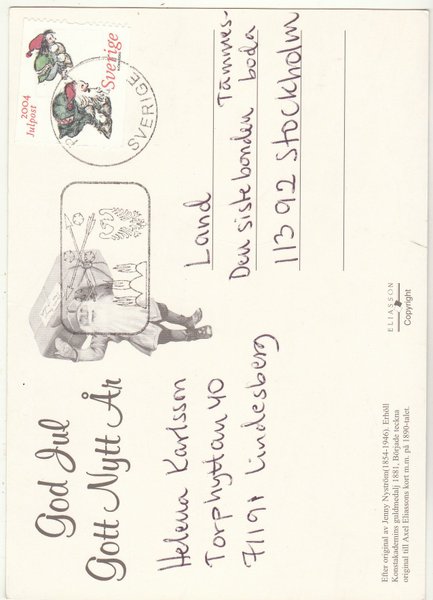 God Jul
Gott Nytt År
Helena Karlsson
Torphyttan 40
71191 Lindesberg
Efter original av Jenny Nyström(1854-1946). Erhöll
Konstakademins guldmedalj 1881, Började teckna
original till Axel Eliassons kort m.m. på 1890-talet.
ELIASSON
Copyright
2004
Julpost
Sverige
SVERIGE
Land
Tämnes-
Den siste bonden boda
11392 Stockholm